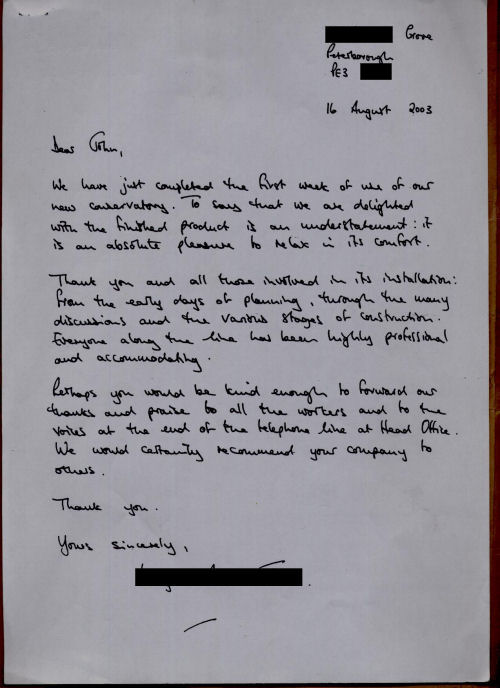 Grove
Peterborough
PE3
16 August 2003
Dear John,
We have just completed the first week of use of our
new conservatory. To say that we are delighted
with the finished product is an understatement: it
is an absolute pleasure to relax in its comfort.
Thank you and all those involved in its installation:
from the early days of planning, through the many
discussions and the various stages of construction.
Everyone along the line has been highly professional
and accommodating.
Perhaps you would be kind enough to forward our
thanks and praise to all the workers and to the
voices at the end of the telephone line at Head Office.
We would certainly recommend your company to
others.
Thank you.
Yours sincerely,